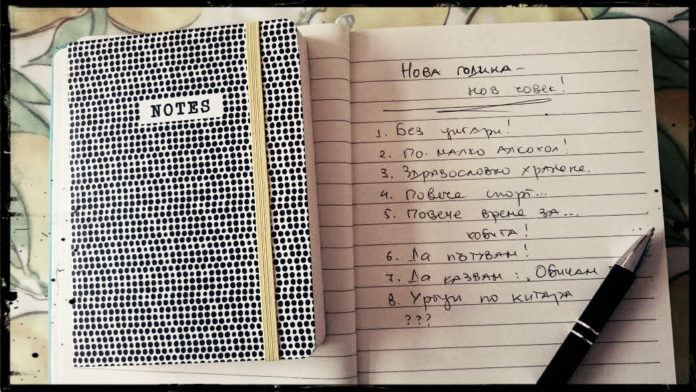 NOTES
Нова година –
нов човек!
1. Без цигари!
2. По-малко алкохол!
3. Здравословно хранене.
4. Повече спорт...
5. Повече време за...
хобита!
6. Да пътувам!
7. Да казвам: „Обичам
8. Уроци по китара
???